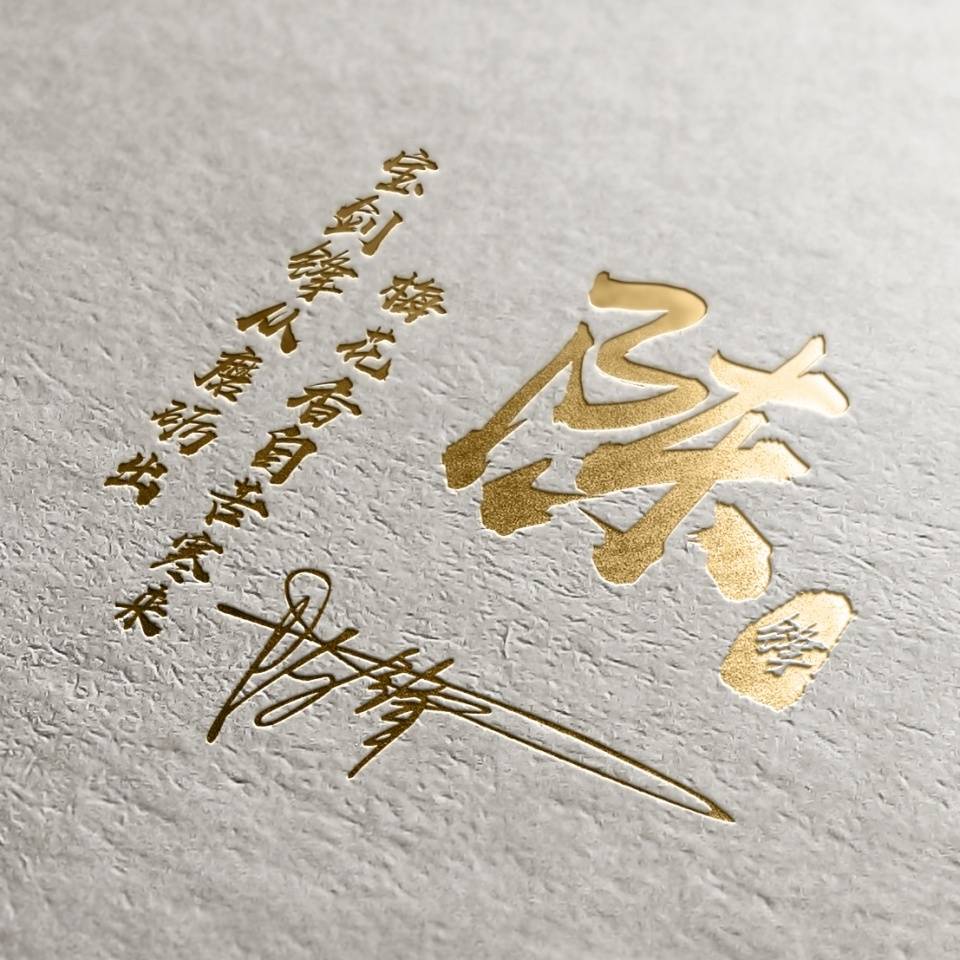 陈
锋
宝剑锋从磨砺出
梅花香自苦寒来
陈锋